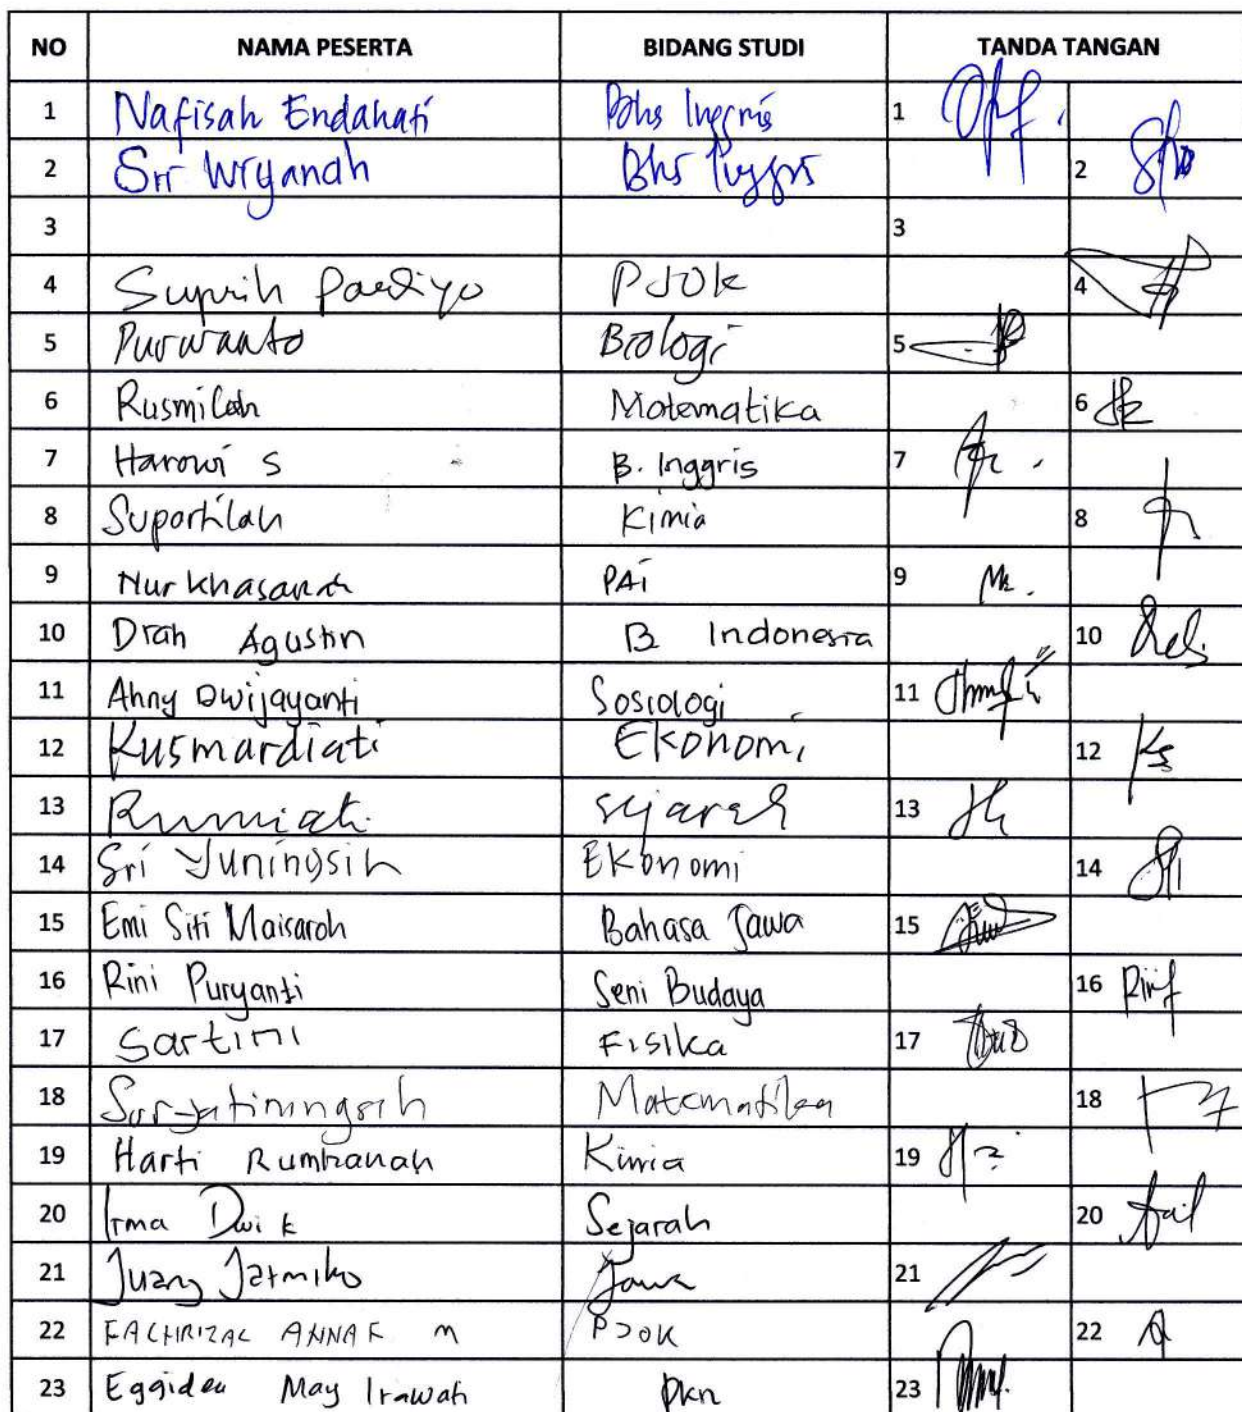 NO NAMA PESERTA BIDANG STUDI TANDA TANGAN
1 Nafisah Endahati Bhs Inggris 1
2 Sri Wryanah Bhs Inggris 2
3 3
4 Suprih Pardiyo PJOK 4
5 Purwanto Biologi 5
6 Rusmilah Matematika 6
7 Harowi S B. Inggris 7
8 Suportilah Kimia 8
9 Nur Khasanah PAI 9
10 Diah Agustin B Indonesia 10
11 Anny Dwijayanti Sosiologi 11
12 Kusmardiati Ekonomi 12 Ks
13 Rumiati sejarah 13
14 Sri Yuningsih EKonomi 14
15 Emi Siti Maisaroh Bahasa Jawa 15
16 Rini Puryanti Seni Budaya 16
17 Sartini Fisika 17
18 Suryatiningsih Matematika 18
19 Harti Rumhanah Kimia 19
20 Irma Dwi K Sejarah 20
21 Juang Jatmiko Jawa 21
22 FACHRIZAL ANNAF M PJOK 22
23 Eggidea May Irawati Pkn 23